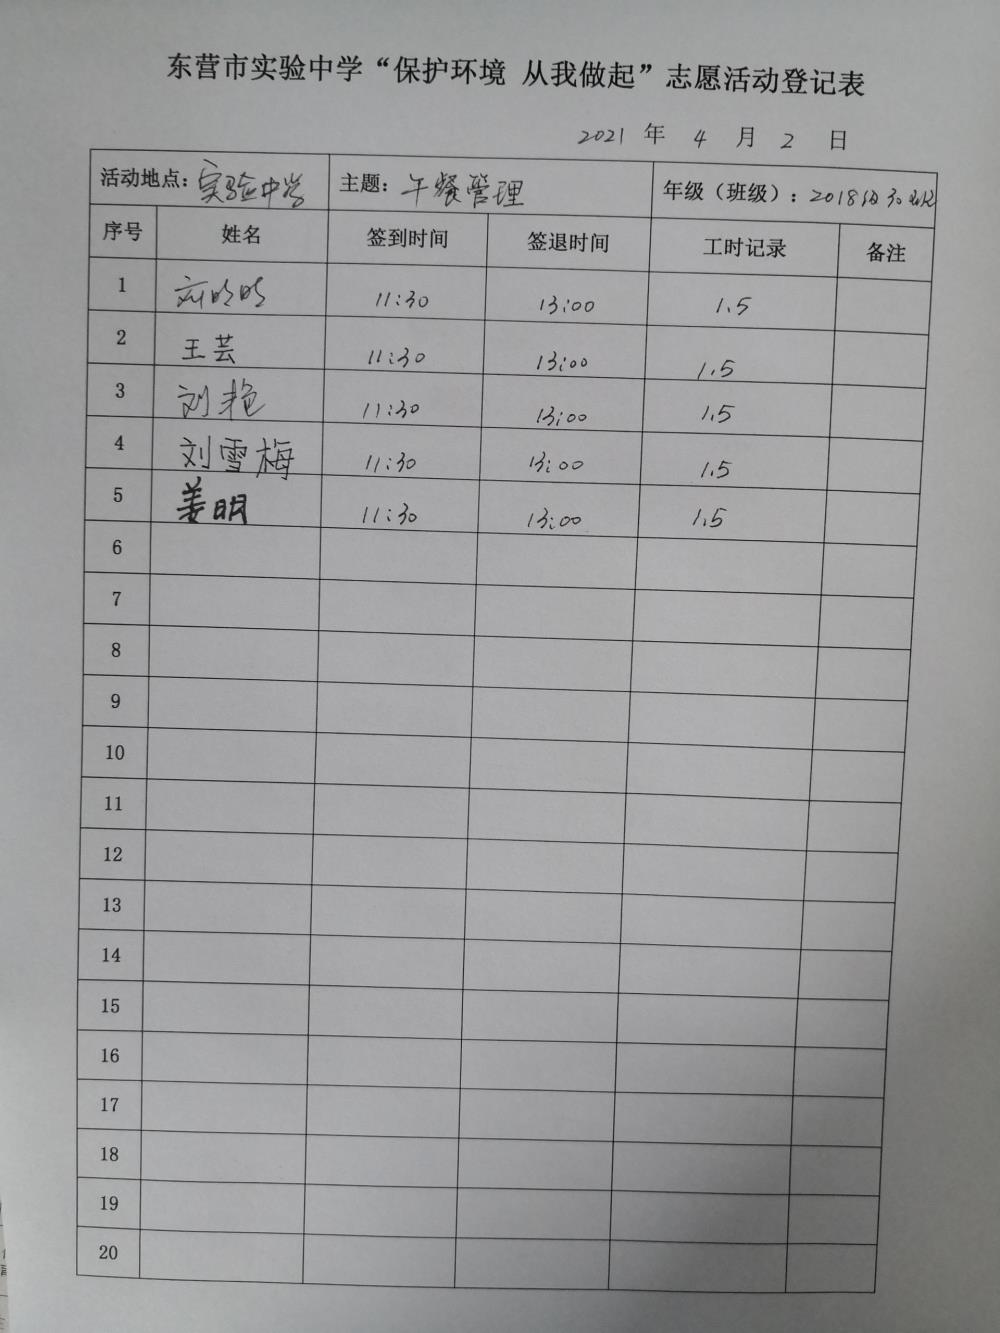 东营市实验中学“保护环境 从我做起”志愿活动登记表
2021 年 4 月 2 日
活动地点：实验中学 主题：午餐管理 年级（班级）：2018级30班
序号 姓名 签到时间 签退时间 工时记录 备注
1 明明 11:30 13:00 1.5
2 王芸 11:30 13:00 1.5
3 刘艳 11:30 13:00 1.5
4 刘雪梅 11:30 13:00 1.5
5 姜明 11:30 13:00 1.5
6
7
8
9
10
11
12
13
14
15
16
17
18
19
20